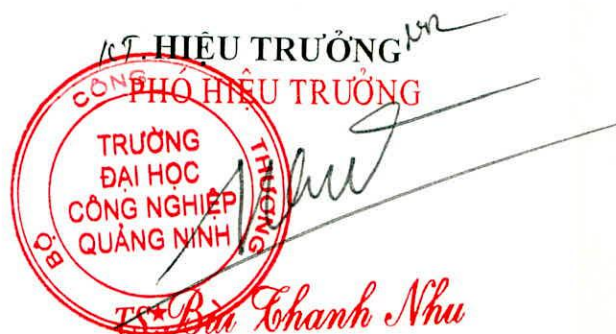 KT. HIỆU TRƯỞNG
PHÓ HIỆU TRƯỞNG
BỘ CÔNG THƯƠNG
TRƯỜNG
ĐẠI HỌC
CÔNG NGHIỆP
QUẢNG NINH
TS. Bùi Thanh Nhu